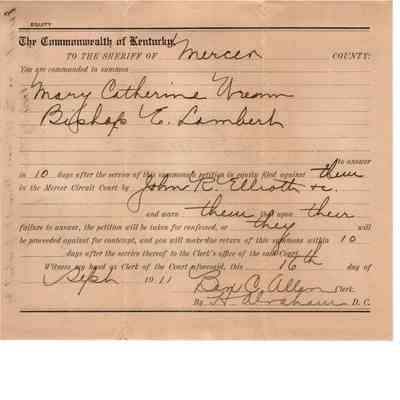 EQUITY
The Commonwealth of Kentucky,
TO THE SHERIFF OF Mercer COUNTY:
You are commanded to summon
Mary Catherine
Bishop E. Lambert
to answer
in 10 days after the service of this summons a petition in equity filed against them
in the Mercer Circuit Court by John R. Elliott &c.
and warn them that upon their
failure to answer, the petition will be taken for confessed, or they will
be proceeded against for contempt, and you will make due return of this summons within 10
days after the service thereof to the Clerk's office of the said Court.
Witness my hand as Clerk of the Court aforesaid, this 16th day of
Sept 1911 Ben C. Allen Clerk.
By H. Abraham D. C.